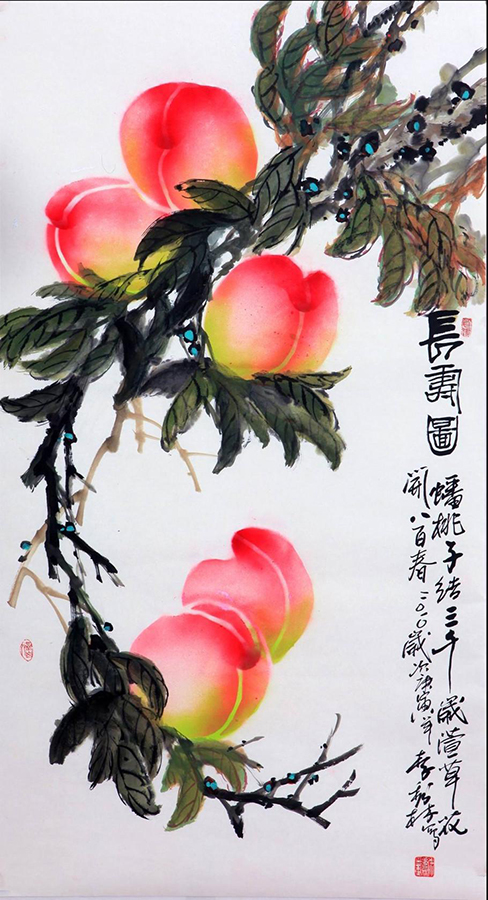 長壽圖
蟠桃子結三千歲萱草花
開八百春二〇一〇歲次庚寅年李